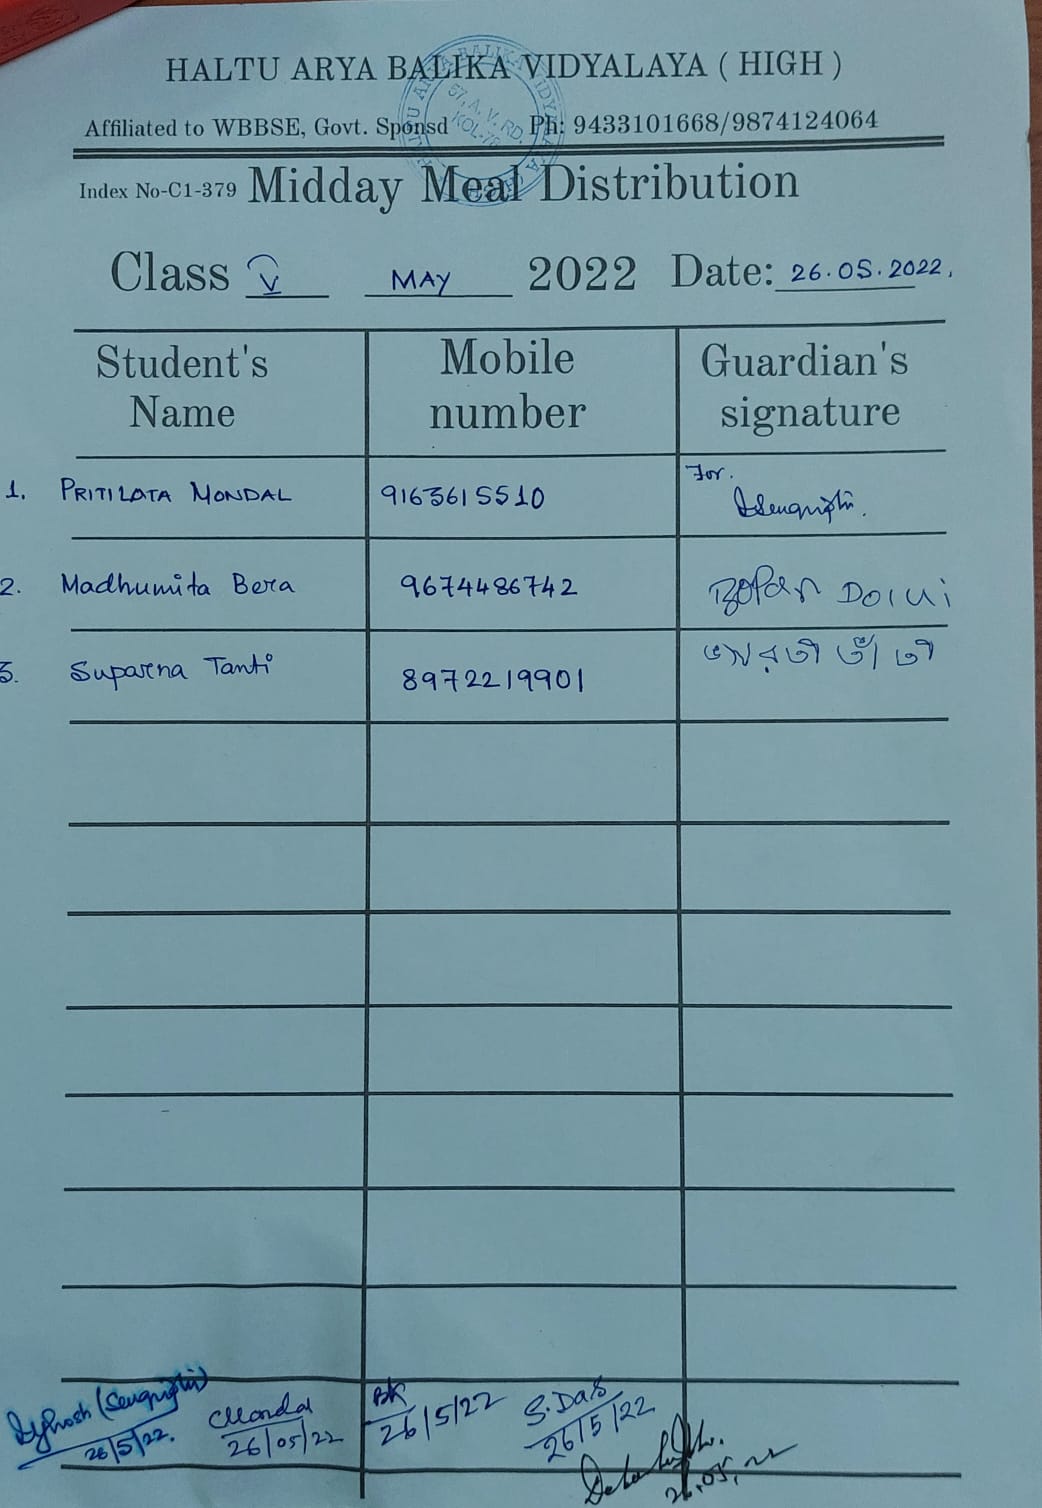 HALTU ARYA BALIKA VIDYALAYA ( HIGH )
Affiliated to WBBSE, Govt. Sponsd Ph: 9433101668/9874124064
57, A. V. RD.
KOL-78
Index No-C1-379 Midday Meal Distribution
Class V MAY 2022 Date: 26.05.2022.
Student's Name Mobile number Guardian's signature
1. PRITILATA MONDAL 9163615510 For.
2. Madhumita Bera 9674486742
3. Suparna Tanti 8972219901 আরতী তাঁতী
26/5/22. 26/05/22 BK 26/5/22 S.Das 26/5/22
26.05.22